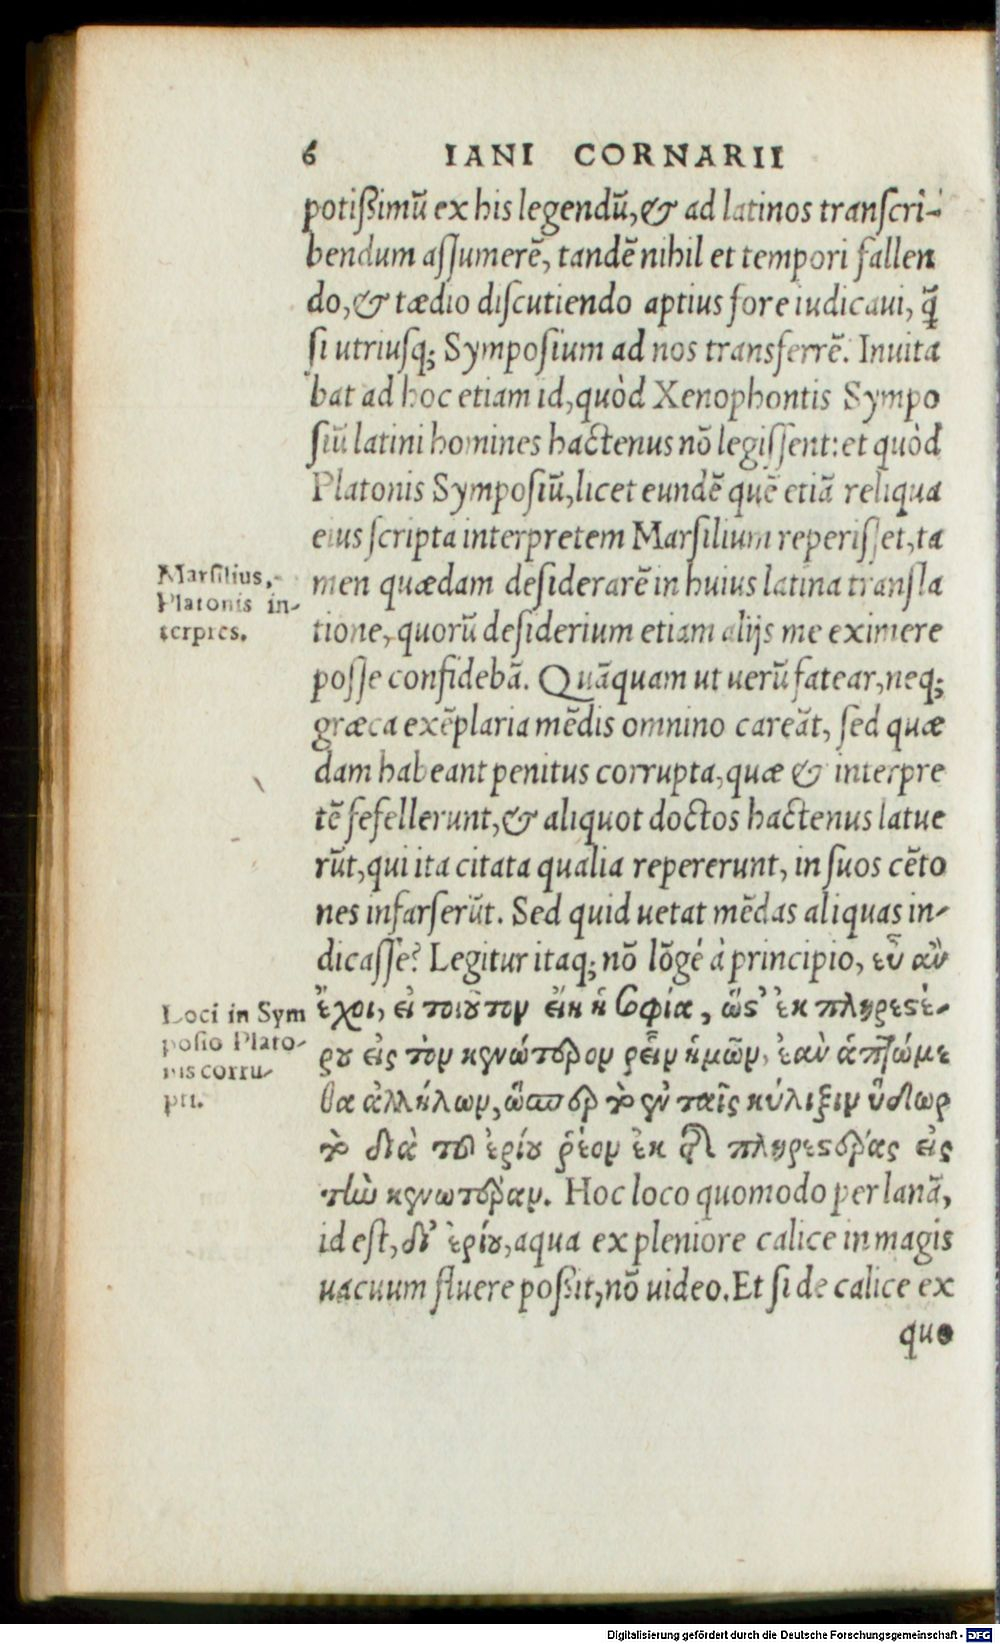 6 IANI CORNARII
potißimũ ex his legendũ, & ad latinos transcri-
bendum assumerẽ, tandẽ nihil et tempori fallen
do, & tædio discutiendo aptius fore iudicaui, q̃
si utriusq; Symposium ad nos transferrẽ. Inuita
bat ad hoc etiam id, quòd Xenophontis Sympo
siũ latini homines hactenus nõ legissent: et quòd
Platonis Symposiũ, licet eundẽ quẽ etiã reliqua
eius scripta interpretem Marsilium reperisset, ta
Marsilius,
Platonis in-
terpres.
men quædam desiderarẽ in huius latina transla
tione, quorũ desiderium etiam alijs me eximere
posse confidebã. Quãquam ut uerũ fatear, neq;
græca exẽplaria mẽdis omnino careãt, sed quæ
dam habeant penitus corrupta, quæ & interpre
tẽ fefellerunt, & aliquot doctos hactenus latue
rũt, qui ita citata qualia repererunt, in suos cẽto
nes infarserũt. Sed quid uetat mẽdas aliquas in-
dicasse? Legitur itaq; nõ lõgé à principio, εὖ ἂν
Loci in Sym
posio Plato-
nis corru-
pti.
ἔχοι, εἰ τοιοῦτον εἴη ἡ σοφία, ὥς' ἐκ πληρεστέ-
ρου εἰς τὸν κενώτερον ῥεῖν ἡμῶν, ἐὰν ἁπτώμε
θα ἀλλήλων, ὥσπερ τὸ ἐν ταῖς κύλιξιν ὕδωρ
τὸ διὰ τοῦ ἐρίου ῥέον ἐκ τῆς πληρεστέρας εἰς
τὴν κενωτέραν. Hoc loco quomodo per lanã,
id est, δι' ἐρίου, aqua ex pleniore calice in magis
uacuum fluere poßit, nõ uideo. Et si de calice ex
quo
Digitalisierung gefördert durch die Deutsche Forschungsgemeinschaft - DFG